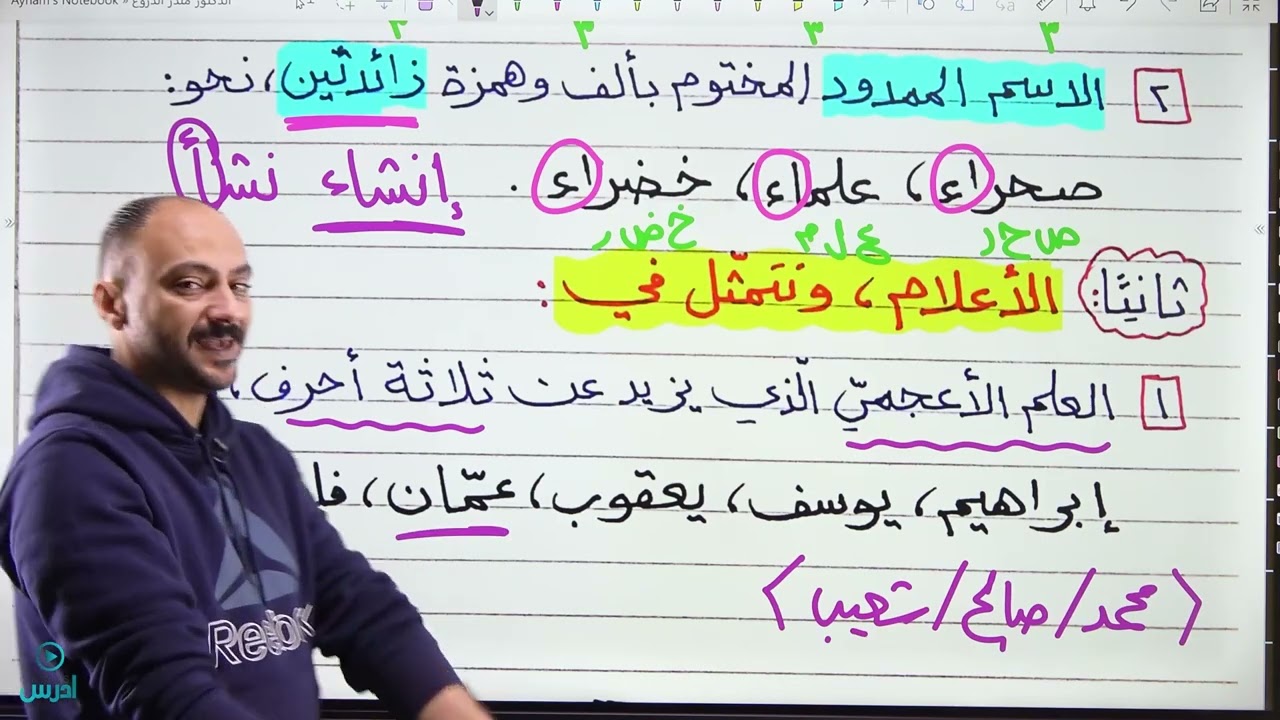 الدكتور منذر الدروع » Ayham's Notebook
٣ ٣ ٣ ٣
٢ الاسم الممدود المختوم بألف وهمزة زائدتين، نحو:
صحراء، علماء، خضراء. إنشاء نشأ
ص ح ر ع ل م خ ض ر
ثانيًا: الأعلام، وتتمثّل في:
١ العلم الأعجميّ الّذي يزيد عن ثلاثة أحرف،
إبراهيم، يوسف، يعقوب، عمّان، فل
⟨ محمد / صالح / شعيب ⟩
Reebok
ادرس